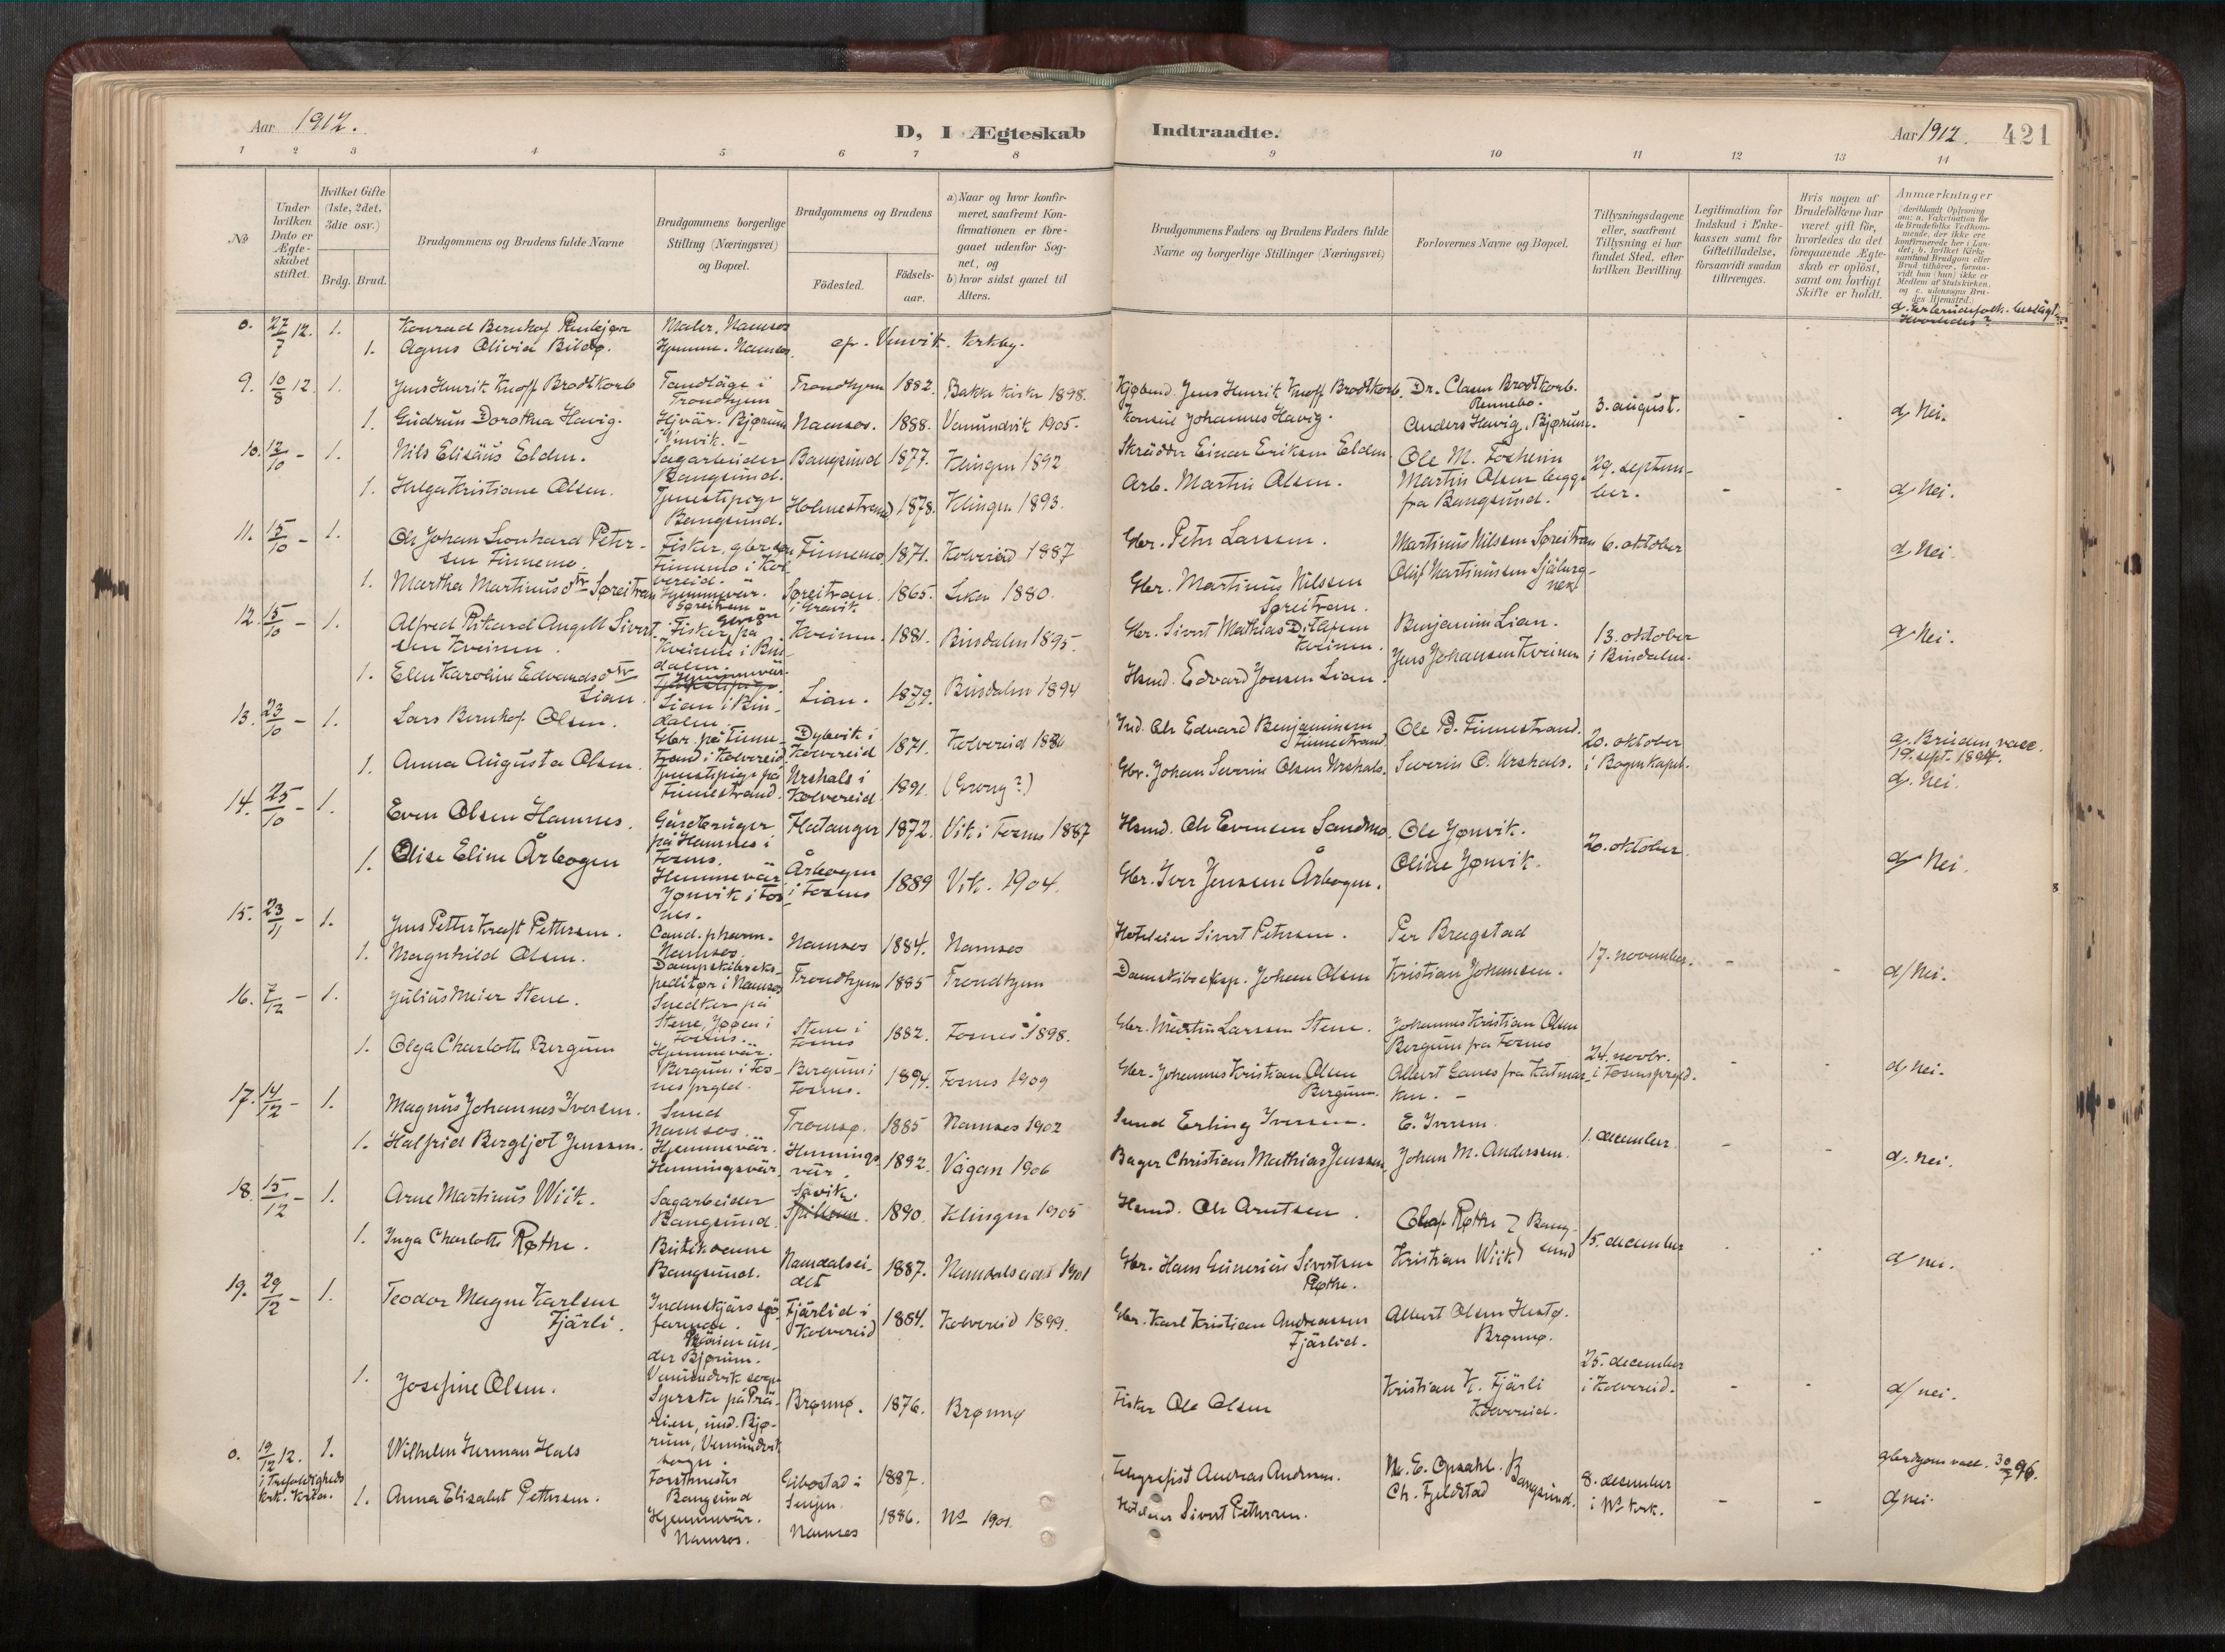 Aar 1912.
D, I Ægteskab
Indtraadte.
Aar 1912.
421
1 2 3 4 5 6 7 8
9 10 11 12 13 14
No
Under hvilken Dato er Ægteskabet stiftet.
Hvilket Gifte (1ste, 2det, 3die osv.)
Brdg. Brud.
Brudgommens og Brudens fulde Navne
Brudgommens borgerlige Stilling (Næringsvei) og Bopæl.
Brudgommens og Brudens
Födested.
Födselsaar.
a) Naar og hvor konfirmeret, saafremt Konfirmationen er foregaaet udenfor Sognet, og
b) hvor sidst gaaet til Alters.
Brudgommens Faders og Brudens Faders fulde Navne og borgerlige Stillinger (Næringsvei)
Forlovernes Navne og Bopæl.
Tillysningsdagene eller, saafremt Tillysning ei har fundet Sted, efter hvilken Bevilling.
Legitimation for Indskud i Enkekassen samt for Giftetilladelse, forsaavidt saadan tiltrænges.
Hvis nogen af Brudefolkene har været gift för, hvorledes da det foregaaende Ægteskab er oplöst, samt om lovligt Skifte er holdt.
Anmærkninger
(deriblandt Oplysning om: a. Vakcination for de Brudefolks Vedkommende, der ikke ere konfirmerede her i Landet; b. hvilket Kirkesamfund Brudgom eller Brud tilhörer, forsaavidt han (hun) ikke er Medlem af Statskirken, og c. udensogns Brudes Hjemsted.)
d. Er brudefolk. beslägt. Hvorledes?
0. 27/7 12. 1. Konrad Bernhof Maler. Namsos
1. Agnes Olivia Hjemme. Namsos. Vemvik. Kirkby.
9. 10/8 12. 1. Jens Henrik Knoff Brodtkorb Tandläge i Trondhjem Trondhjem 1882. Bakke kirke 1898. Kjöbmd. Jens Henrik Knoff Brodtkorb. Dr. Clasen Brodtkorb. Rennebo. 3. august. - - d/ Nei.
1. Gudrun Dorothea Havig. Hjvär. Bjørum i Vemvik. Namsos. 1888. Vemundvik 1905. Konsul Johannes Havig. Anders Havig, Bjørum.
10. 12/10 - 1. Nils Elisäus Elden. Sagarbeider Bangsund. Bangsund 1877. Klingen 1892 Skrädder Einar Eriksen Elden. Ole M. Fosheim 29. september. - - d/ Nei.
1. Helga Kristiane Olsen. Tjenestepige Bangsund. Holmestrand 1878. Klingen 1893. Arb. Martin Olsen. Martin Olsen begge fra Bangsund.
11. 15/10 - 1. Ole Johan Leonhard Petersen Finnemo. Fisker, gbrsøn Finnemo i Kolvereid. Finnemo 1871. Kolvereid 1887 Gbr. Peter Larssen. Martinus Nilssen Søreitran 6. oktober d. Nei.
1. Martha Martinusdtr Søreitran Hjemmevär. Søreitran Søreitran i Gravik 1865. Leka 1880. Gbr. Martinus Nilssen Søreitran. Olaf Martinussen Sjåbergnes.
12. 15/10 - 1. Alfred Rikard Angell Sivertsen Kveinen. Fisker, på Kveinen i Bindalen. Kveinen. 1881. Bindalen 1895. Gbr. Sivert Mathias Kveinen. Benjamin Lian. 13. oktober i Bindalen. d/ Nei.
1. Elen Karoline Edvardsdtr Lian. Hjemmevär. Lian i Bindalen. Lian. 1879. Bindalen 1894 Hsmd. Edvard Jonsen Lian. Jens Johansen Kveinen
13. 23/10 - 1. Lars Bernhof Olsen. Gbr. på Finnestrand i Kolvereid Dybvik i Kolvereid 1871. Kolvereid 1886 Ind. Ole Edvard Benjaminsen Finnestrand Ole B. Finnestrand. 20. oktober i Bogen kapel. a. Bruden vacc. 19. sept. 1894. d. Nei.
1. Anna Augusta Olsen. Tjenestepige på Finnestrand. Urshals i Kolvereid 1891. (Grong?) Gbr. Johan Severin Olsen Urshals. Severin O. Urshals.
14. 25/10 - 1. Even Olsen Hamnes. Gårdbruger på Hamnes i Fosnes. Flatanger 1872. Vik i Fosnes 1887 Hsmd. Ole Evensen Sandmo. Ole Jønvik. 20. oktober. d/ Nei.
1. Elise Eline Årbogen Hjemmevär Jønvik i Fosnes. Årbogen i Fosnes 1889 Vik. 1904. Gbr. Iver Jenssen Årbogen. Oline Jønvik.
15. 23/11 - 1. Jens Petter Kraft Pettersen. Cand. pharm. Namsos. Namsos 1884. Namsos Hoteleier Sivert Petersen. Per Bragstad 17. november. - - d/ Nei.
1. Magnhild Olsen. Dampskibsekspeditør i Namsos Trondhjem 1885 Trondhjem Damskibseksp. Johan Olsen Kristian Johansen.
16. 7/12 - 1. Julius Meier Stene. Snedker på Stene, Jøøen i Fosnes. Stene i Fosnes 1882. Fosnes 1898. Gbr. Martin Larssen Stene. Johannes Kristian Olsen Bergum fra Fosnes 24. novbr. i Fosnes prgld. - - d/ Nei.
1. Olga Charlotte Bergum Hjemmevär. Bergum i Fosnes prgld. Bergum i Fosnes. 1894. Fosnes 1909 Gbr. Johannes Kristian Olsen Bergum. Albert Lanes fra
17. 14/12 - 1. Magnus Johannes Iversen. Smed Namsos. Tromsø. 1885 Namsos 1902 Smed Erling Iversen. E. Iversen. 1. december - - d. nei.
1. Halfrid Bergljot Jenssen. Hjemmevär. Henningsvär. Henningsvär. 1892. Vågan 1906 Bager Christian Mathias Jenssen. Johan M. Anderssen.
18. 15/12 - 1. Arne Martinus Wiik. Sagarbeider Bangsund. Sävik. Spillum. 1890. Klingen 1905 Hsmd. Ole Arntsen. Olaf Røthe } Bangsund 15. december d/ nei.
1. Inga Charlotte Røthe. Butikdame Bangsund. Namdalseidet 1887. Namdalseidet 1901 Gbr. Hans Sivertsen Røthe. Kristian Wiik
19. 29/12 - 1. Teodor Magne Karlsen Fjärli. Indenskjärs sjöfarende. Prärien under Bjørum. Vemundvik sogn Fjärlid i Kolvereid 1884. Kolvereid 1899. Gbr. Karl Kristian Andreassen Fjärlid. Albert Olsen Brønnø. 25. december i Kolvereid. - - d/ nei.
1. Josefine Olsen. Syerske på Prärien, und. Bjørum, Vemundvik sogn. Brønnø. 1876. Brønnø Fisker Ole Olsen Kristian K. Fjärli Kolvereid.
0. 19/12 12. i Trefoldigheds krk. Kr.a. 1. Wilhelm Herman Hals Forstmester Bangsund Gibostad i Senjen. 1887. Telegrafist Andreas Andersen. N. E. Opdahl. Bangsund. 8. desember i Ns krk. - - brdgom vacc. 30/7 96. d/ nei.
1. Anna Elisabet Pettersen. Hjemmevär. Namsos. Namsos 1886. Ns 1901. Hoteleier Sivert Pettersen. Ch. Fjeldstad